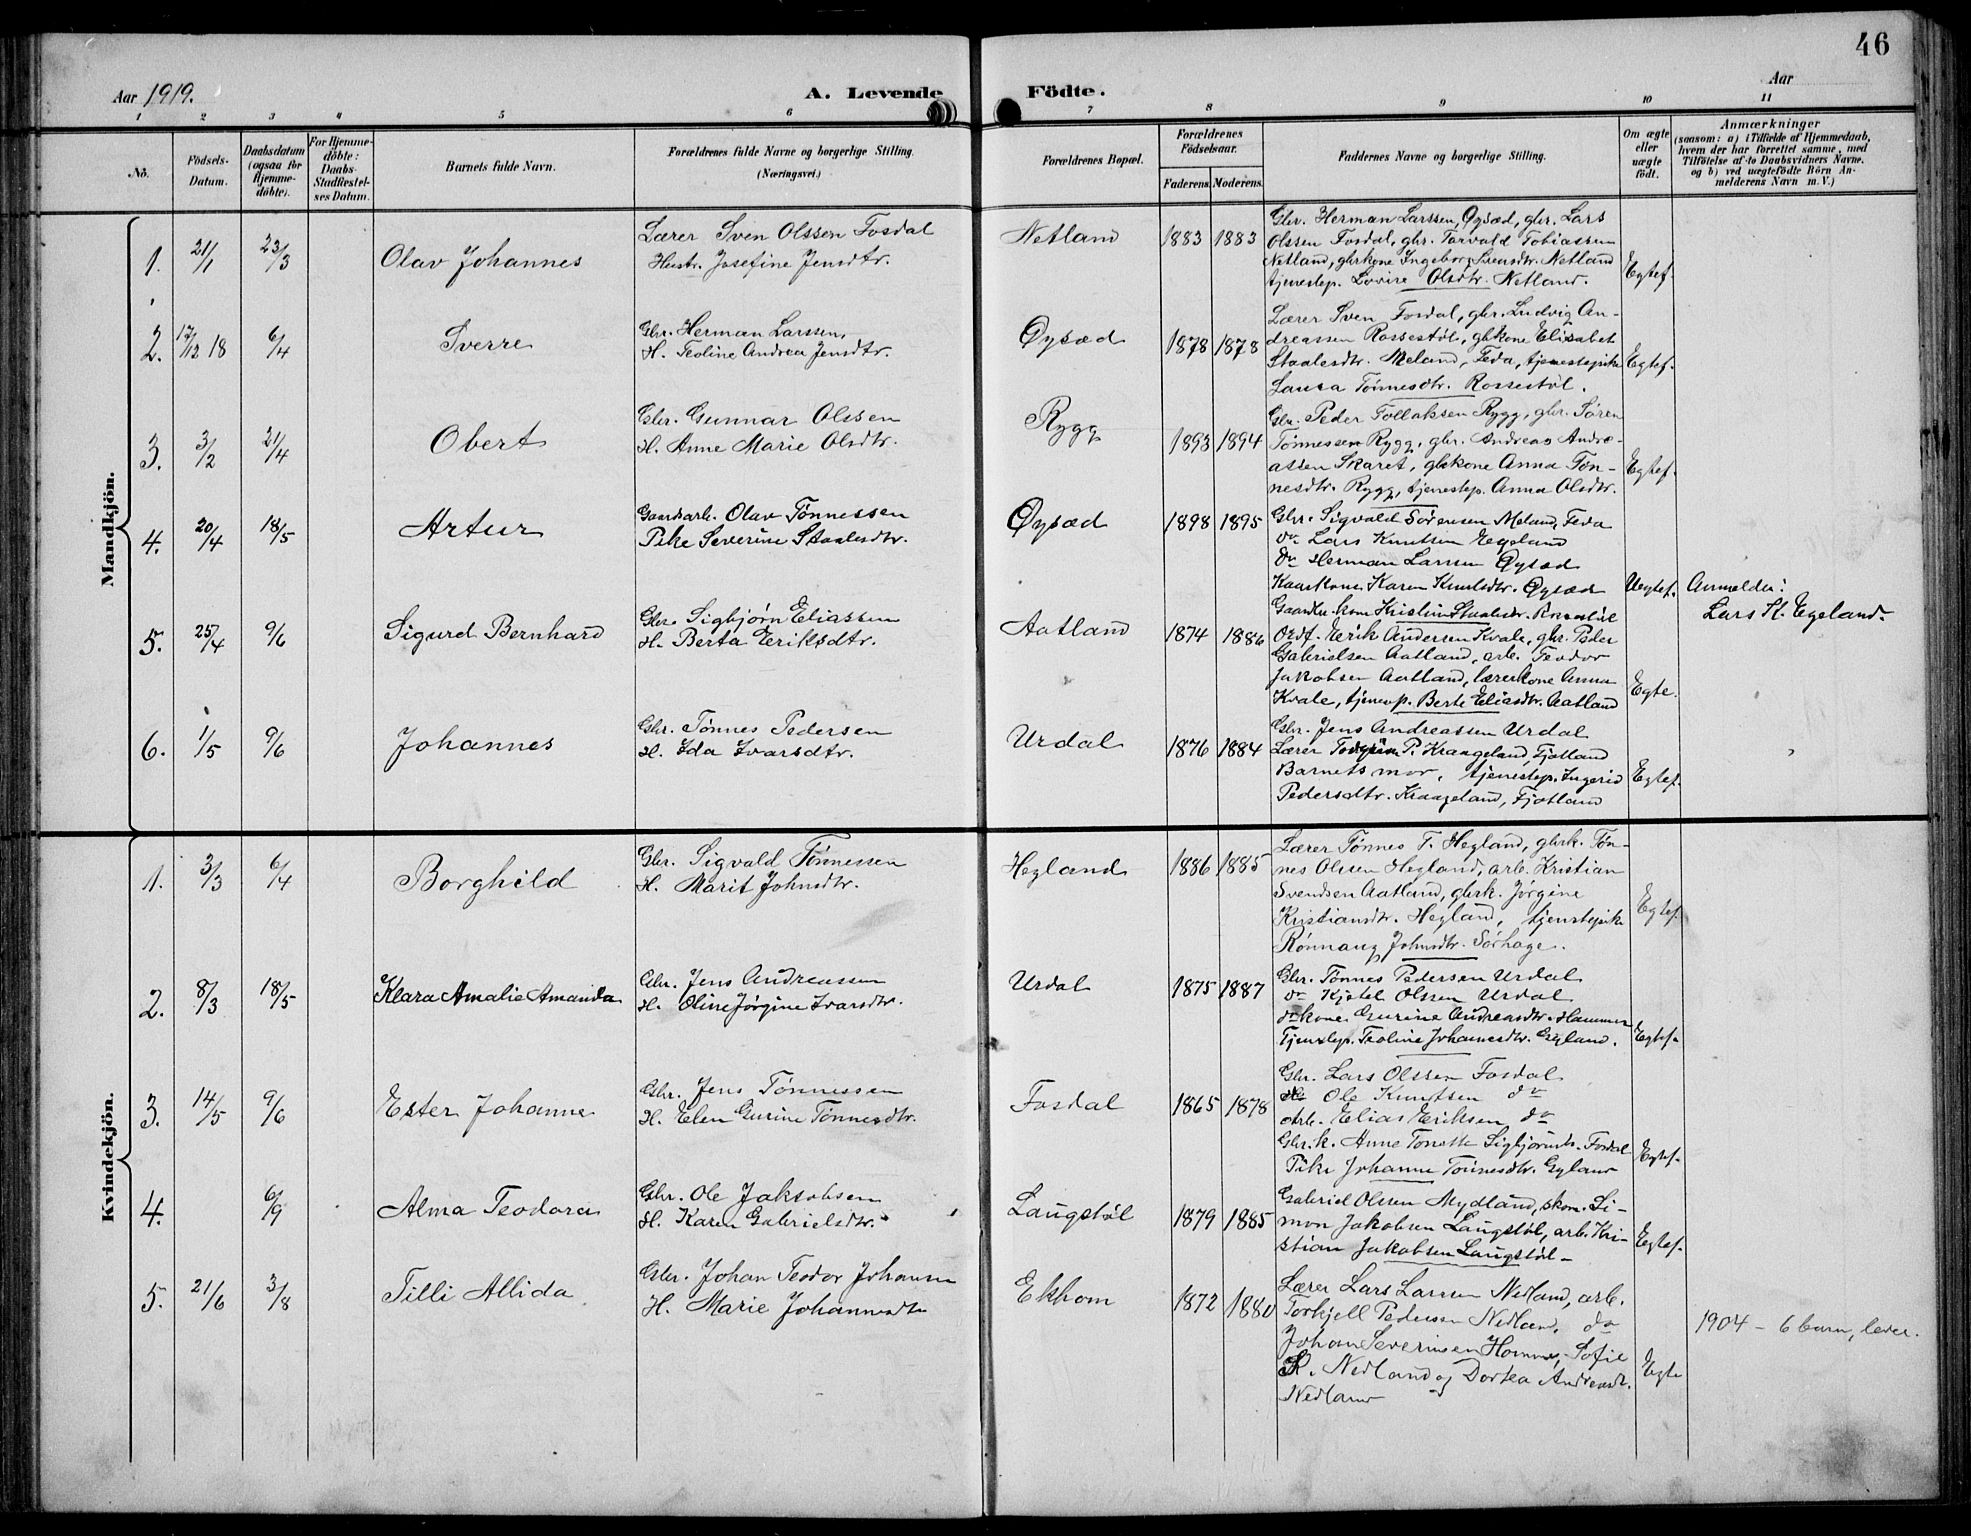 46
Aar 1919.
A. Levende
Födte.
Aar
1 2 3 4 5 6 7 8 9 10 11
No.
Födsels-
Datum.
Daabsdatum
(ogsaa för
Hjemme-
döbte).
For Hjemme-
döbte:
Daabs-
Stadfæstel-
ses Datum.
Barnets fulde Navn.
Forældrenes fulde Navne og borgerlige Stilling.
(Næringsvei.)
Forældrenes Bopæl.
Forældrenes
Födselsaar.
Faderens. Moderens.
Faddernes Navne og borgerlige Stilling.
Om ægte
eller
uægte
födt.
Anmærkninger
(saasom: a) i Tilfælde af Hjemmedaab,
hvem der har forrettet samme, med
Tilföielse af to Daabsvidners Navne,
og b) ved uægtefödte Börn An-
melderens Navn m. V.)
Mandkjön.
1. 21/1 23/3 Olav Johannes
Lærer Sven Olssen Fosdal
Hustr. Josefine Jensdtr.
Netland 1883 1883
Gbr. Herman Larssen Øysæd, gbr. Lars
Olssen Fosdal, gbr. Torvald Tobiassen
Netland, gbrkone Ingeborg Svensdtr. Netland
tjenestep. Lovise Olsdtr. Netland.
Egtef.
2. 17/12 18 6/4 Sverre
Gbr. Herman Larssen,
H. Teoline Andrea Jensdtr.
Øysæd 1878 1878
Lærer Sven Fosdal, gbr. Ludvig An-
dreassen Rossestøl, gbkone Elisabet
Staalesdtr. Meland, Feda, tjenestepike
Laura Tønnesdtr. Rossestøl.
Egtef.
3. 3/2 21/4 Obert
Gbr. Gunnar Olssen
H. Anne Marie Olsdtr.
Rygg 1893 1894
Gbr. Peder Tollaksen Rygg, gbr. Søren
Tønnessen Rygg, gbr. Andreas Andre-
assen Skaret, gbkone Anna Tøn-
nesdtr. Rygg, tjenestep. Anna Olsdtr.
Egtef.
4. 20/4 18/5 Artur
Gaardsarb. Olav Tønnessen
Pike Severine Staalesdtr.
Øysæd 1898 1895
Gbr. Sigvald Sørensen Meland, Feda
do Lars Knutsen Egeland
do Herman Larsen Øysæd
Kaarkone Karen Knutsdtr. Øysæd
Gaardbr.kone Kristin Staalesdtr. Rossestøl
Uegtef.
Anmelder:
Lars K. Egeland.
5. 25/4 9/6 Sigurd Bernhard
Gbr. Sigbjørn Eliassen
H. Berta Eriksdtr.
Aatland 1874 1886
Ordf. Erik Andersen Kvale, gbr. Peder
Gabrielsen Aatland, arb. Teodor
Jakobsen Aatland, lærerkone Anna
Kvale, tjenesp. Berte Eliasdtr. Aatland
Egte.
6. 1/5 9/6 Johannes
Gbr. Tønnes Pedersen
H. Ida Ivarsdtr.
Urdal 1876 1884
Gbr. Jens Andreassen Urdal
Lærer Torgrim P. Kraageland, Fjotland
Barnets mor, tjenestep. Ingerid
Pedersdtr. Kraageland, Fjotland
Egtef.
Kvindekjön.
1. 3/3 6/4 Borghild
Gbr. Sigvald Tønnessen
H. Marit Johnsdtr.
Hegland 1886 1885
Lærer Tønnes T. Hegland, gbrk. Tøn-
nes Olssen Hegland, arb. Kristian
Svendsen Aatland, gbrk. Jørgine
Kristiansdtr. Hegland, tjenstepike
Rønnaug Johnsdtr. Sørhage.
Egtef.
2. 8/3 18/5 Klara Amalie Amanda
Gbr. Jens Andreassen
H. Oline Jørgine Ivarsdtr.
Urdal 1875 1887
Gbr. Tønnes Pedersen Urdal
do Kjetel Olssen Urdal
do kone Gurine Andreasdtr. Hammer
Tjenstep. Teoline Johannesdtr. Gyland.
Egtef.
3. 14/5 9/6 Ester Johanne
Gbr. Jens Tønnessen
H. Elen Gurine Tønnesdtr.
Fosdal 1865 1878
Gbr. Lars Olssen Fosdal
Ole Knutsen do
Arb. Elias Eriksen do
Gbr.k. Anne Tonette Sigbjørnsdtr. Fosdal
Pike Johanne Tønnesdtr. Gyland
Egtef.
4. 6/9 Alma Teodora
Gbr. Ole Jakobsen
H. Karen Gabrielsdtr.
Laugstøl 1879 1885
Gabriel Olssen Mydland, skom. Si-
mon Jakobsen Laugstøl, arb. Kri-
stian Jakobsen Laugstøl
Egtef.
5. 21/6 3/8 Tilli Allida
Gbr. Johan Teodor Johansen
H. Marie Johannesdtr
Ekhom 1872 1880
Lærer Lars Larsen Nedland, arb.
Torkjell Pedersen Nedland, do
Johan Severinsen Hommes, Sofie
K. Nedland og Dortea Andreasdtr.
Nedland
Egte
1904 – 6 barn, lever.